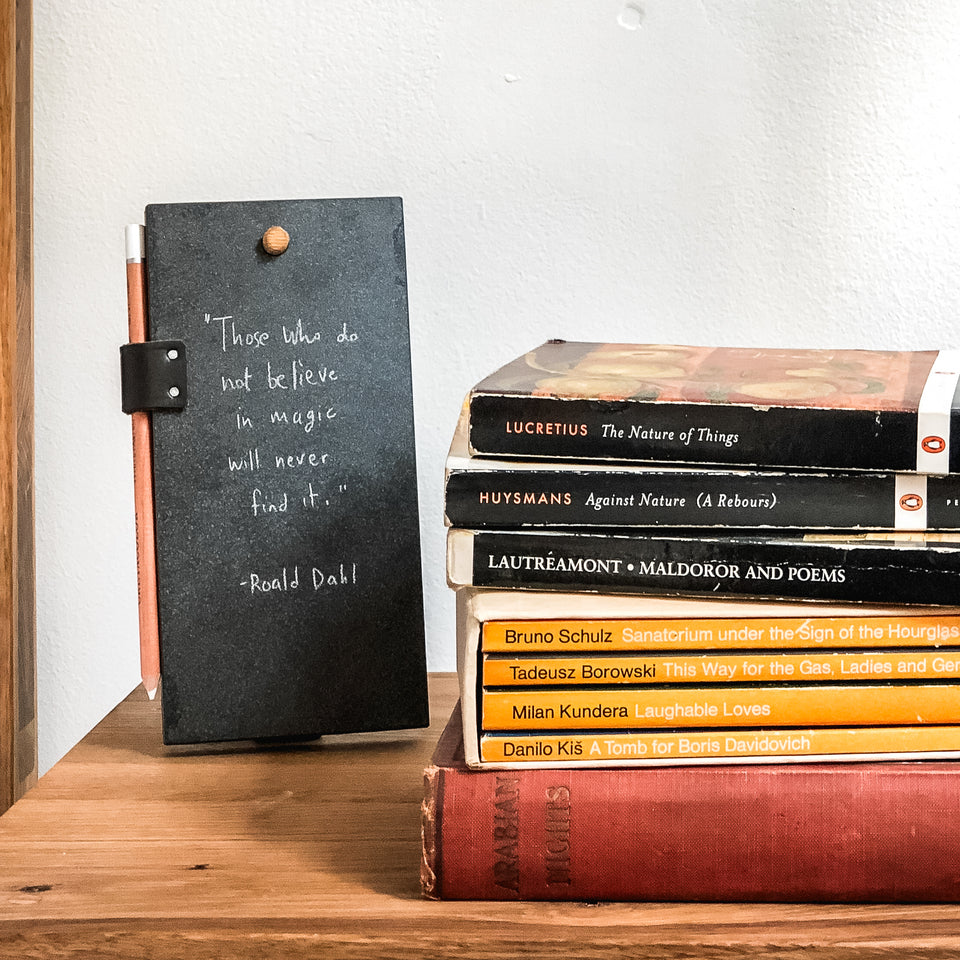 "Those who do
not believe
in magic
will never
find it."
-Roald Dahl
LUCRETIUS The Nature of Things
HUYSMANS Against Nature (A Rebours)
PE
LAUTRÉAMONT • MALDOROR AND POEMS
Bruno Schulz Sanatorium under the Sign of the Hourglas
Tadeusz Borowski This Way for the Gas, Ladies and Gen
Milan Kundera Laughable Loves
Danilo Kiš A Tomb for Boris Davidovich
ARABIAN
NIGHTS